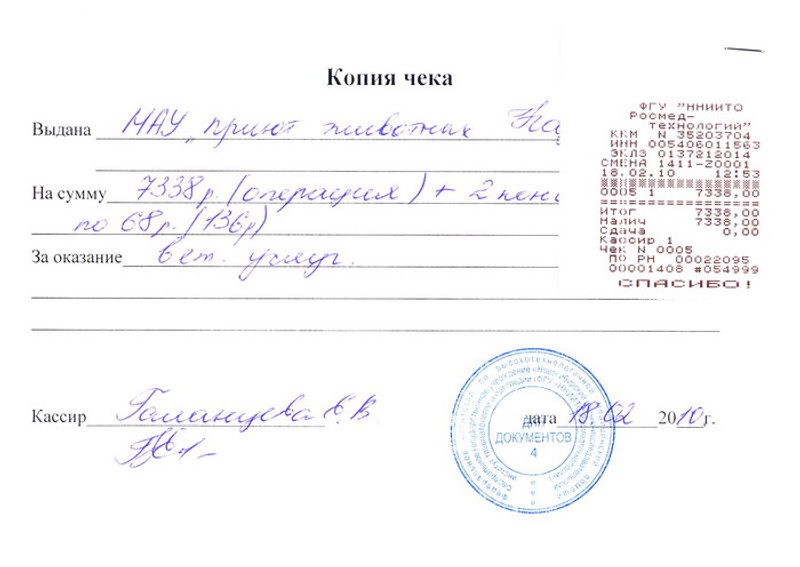 Копия чека
Выдана МАУ „приют животных
На сумму 7338р. (операция) + 2
по 68р. (136р)
За оказание вет. услуг.
Кассир
дата 18.02 2010, г.
ФГУ "ННИИТО
Росмед-
технологий"
ККМ N 35203704
ИНН 005406011563
ЭКЛЗ 0137212014
СМЕНА 1411-Z0001
18.02.10 12:53
0005 1 7338,00
Итог 7338,00
Налич 7338,00
Сдача 0,00
Кассир 1
Чек N 0005
ПО РН 00022095
00001408 #054999
СПАСИБО!
ДЛЯ
ДОКУМЕНТОВ
4